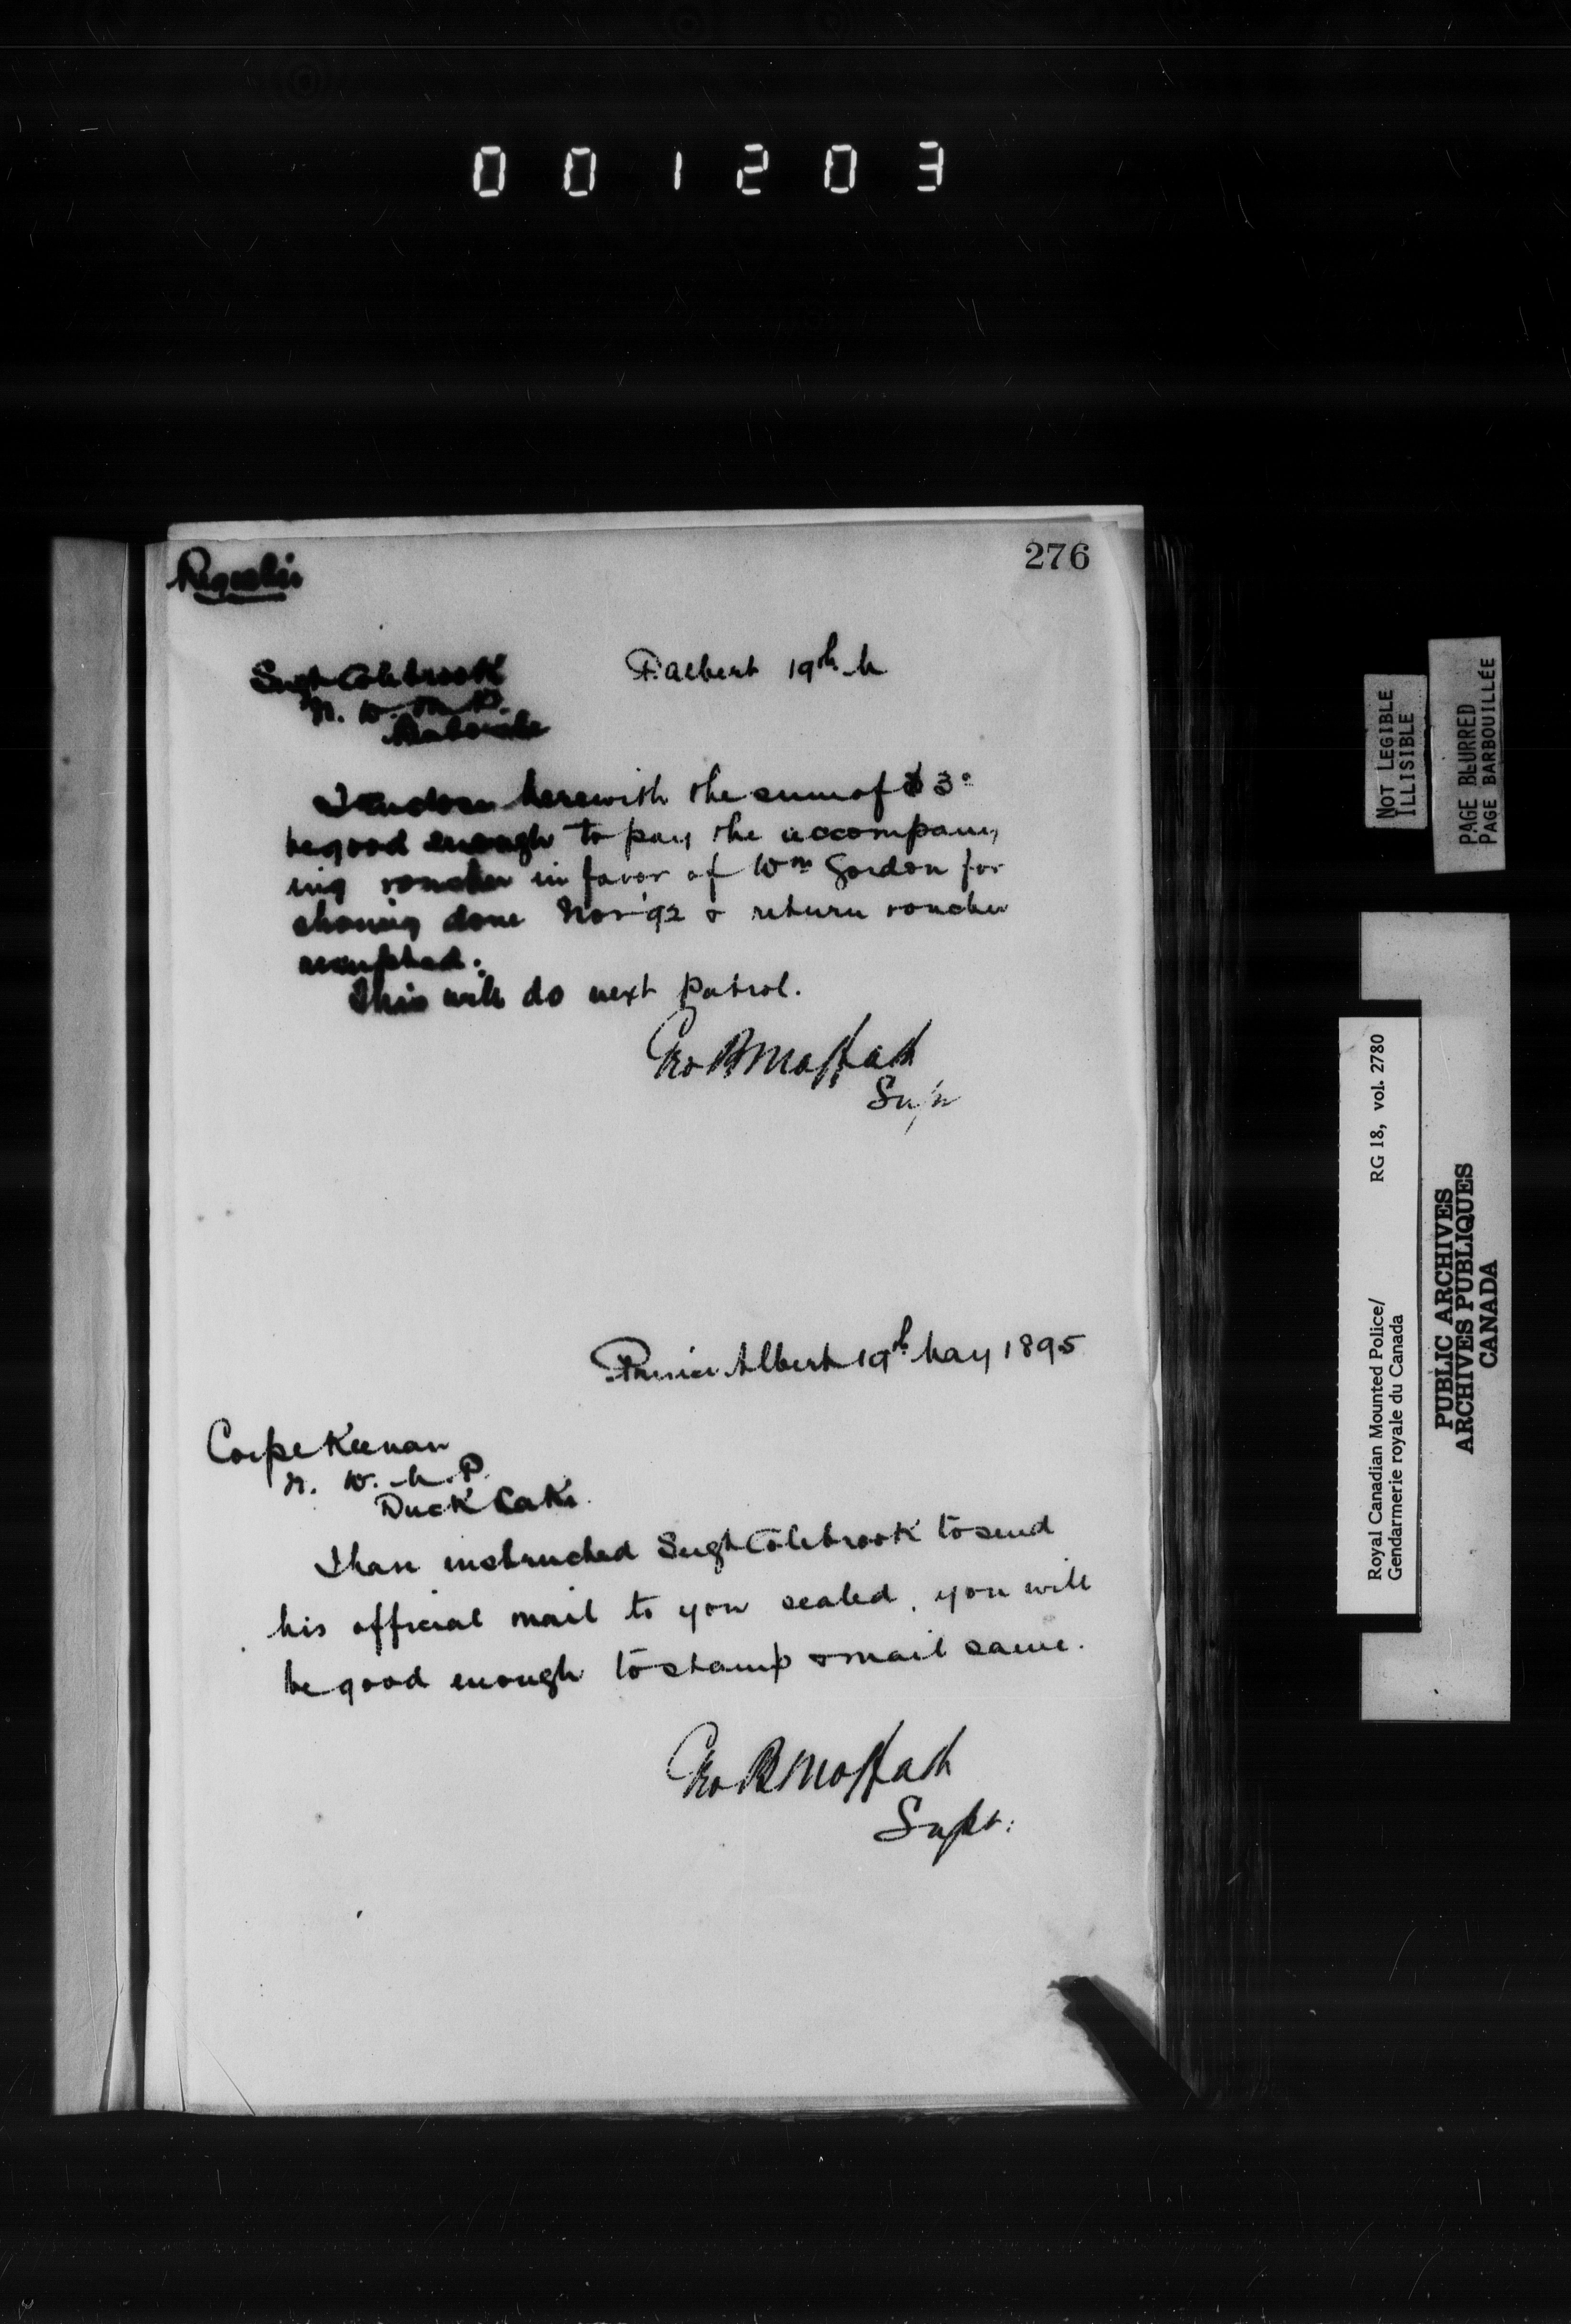 001203
276
Sergt Colebrook
N. W. M. P.
P. Albert 19th M
I enclose herewith the sum of $3.
be good enough to pay the accompany
ing voucher in favor of Wm Gordon for
shoeing done Nov '92 & return voucher
receipted.
This will do next patrol.
Geo B Moffatt
Supt
Prince Albert 19th May 1895
Corpl Keenan
N. W. M. P.
Duck Lake.
I have instructed Sergt Colebrook to send
his official mail to you sealed, you will
be good enough to stamp & mail same.
Geo B Moffatt
Supt.
NOT LEGIBLE
ILLISIBLE
PAGE BLURRED
PAGE BARBOUILLÉE
Royal Canadian Mounted Police/ RG 18, vol. 2780
Gendarmerie royale du Canada
PUBLIC ARCHIVES
ARCHIVES PUBLIQUES
CANADA